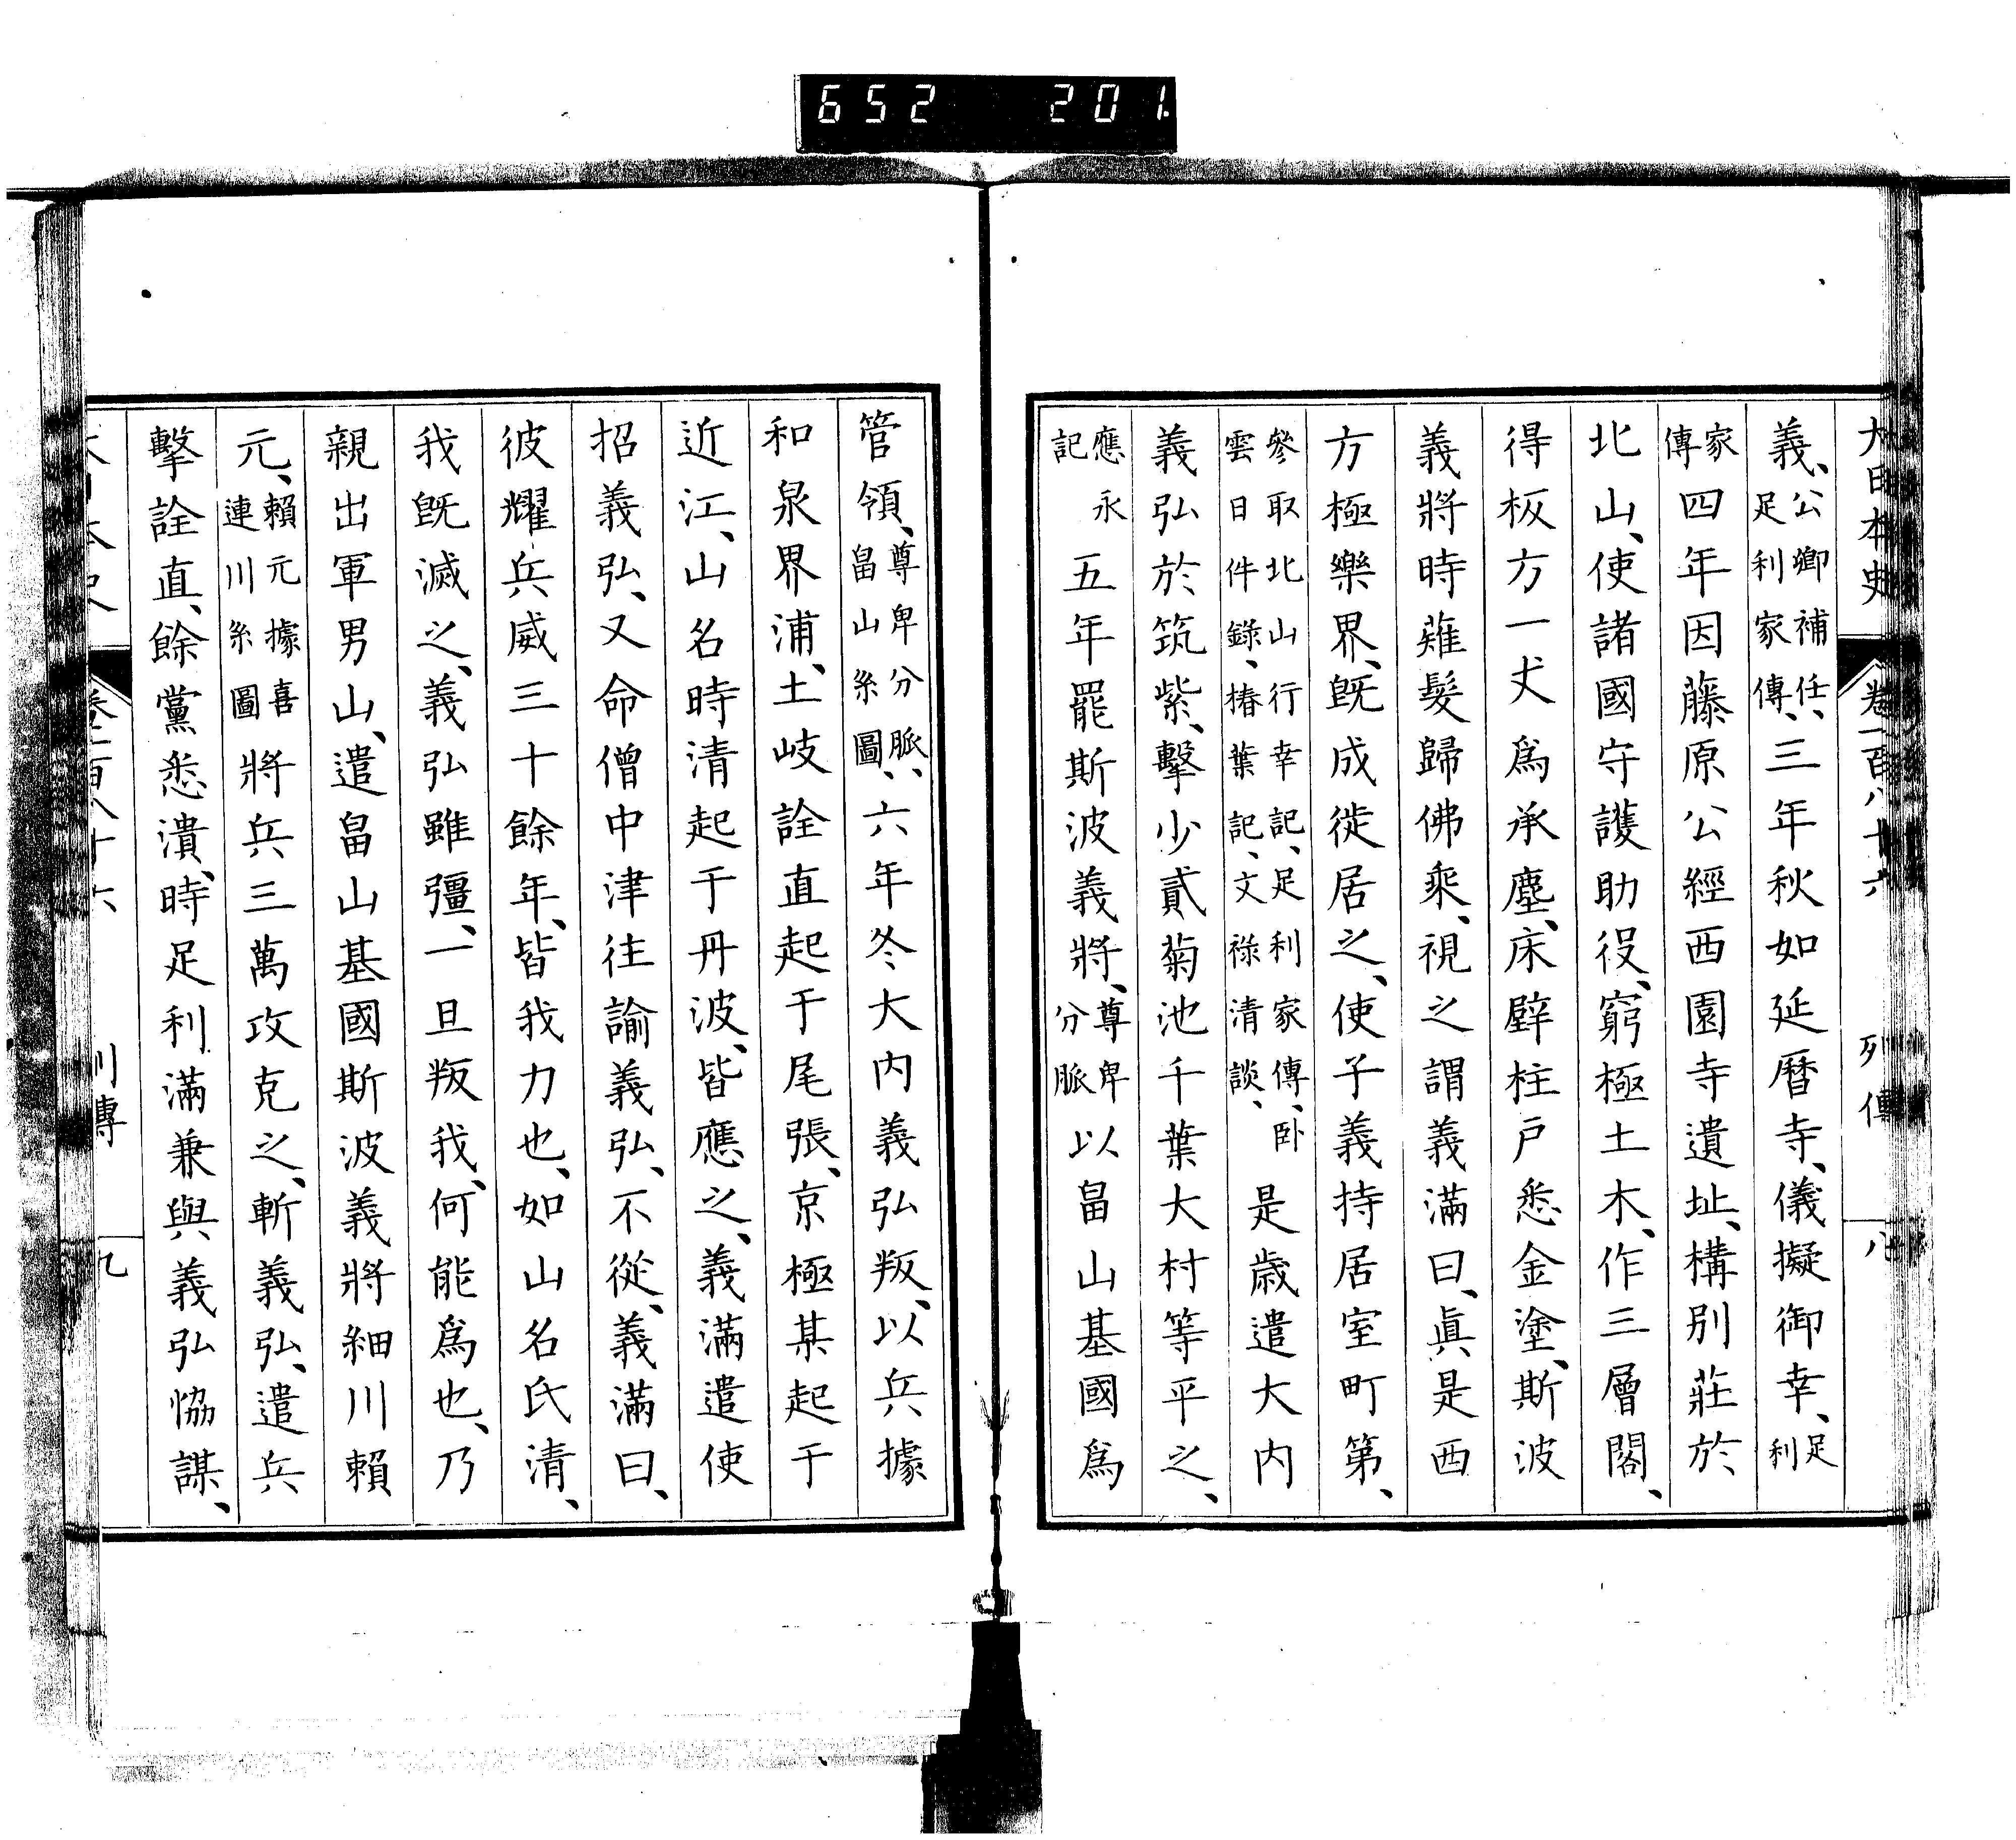 652 201
大日本史 卷一百八十六 列傳 八
義、公卿補任、足利家傳、三年秋如延曆寺、儀擬御幸、足利
家傳四年因藤原公經西園寺遺址、構別莊於
北山、使諸國守護助役、窮極土木、作三層閣、
得板方一丈爲承塵、床壁柱戸悉金塗、斯波
義將時薙髮歸佛乘、視之謂義滿曰、眞是西
方極樂界、旣成徙居之、使子義持居室町第、
參取北山行幸記、足利家傳、臥雲日件錄、椿葉記、文祿清談、是歳遣大内
義弘於筑紫、擊少貳菊池千葉大村等平之、
應永記五年罷斯波義將、尊卑分脈以畠山基國爲
管領、尊卑分脈、畠山系圖、六年冬大内義弘叛、以兵據
和泉界浦、土岐詮直起于尾張、京極某起于
近江、山名時清起于丹波、皆應之、義滿遣使
招義弘、又命僧中津往諭義弘、不從、義滿曰、
彼耀兵威三十餘年、皆我力也、如山名氏清、
我旣滅之、義弘雖彊、一旦叛我、何能爲也、乃
親出軍男山、遣畠山基國斯波義將細川賴
元、賴元據喜連川系圖將兵三萬攻克之、斬義弘、遣兵
擊詮直、餘黨悉潰、時足利滿兼與義弘恊謀、
大日本史 卷一百八十六 列傳 九